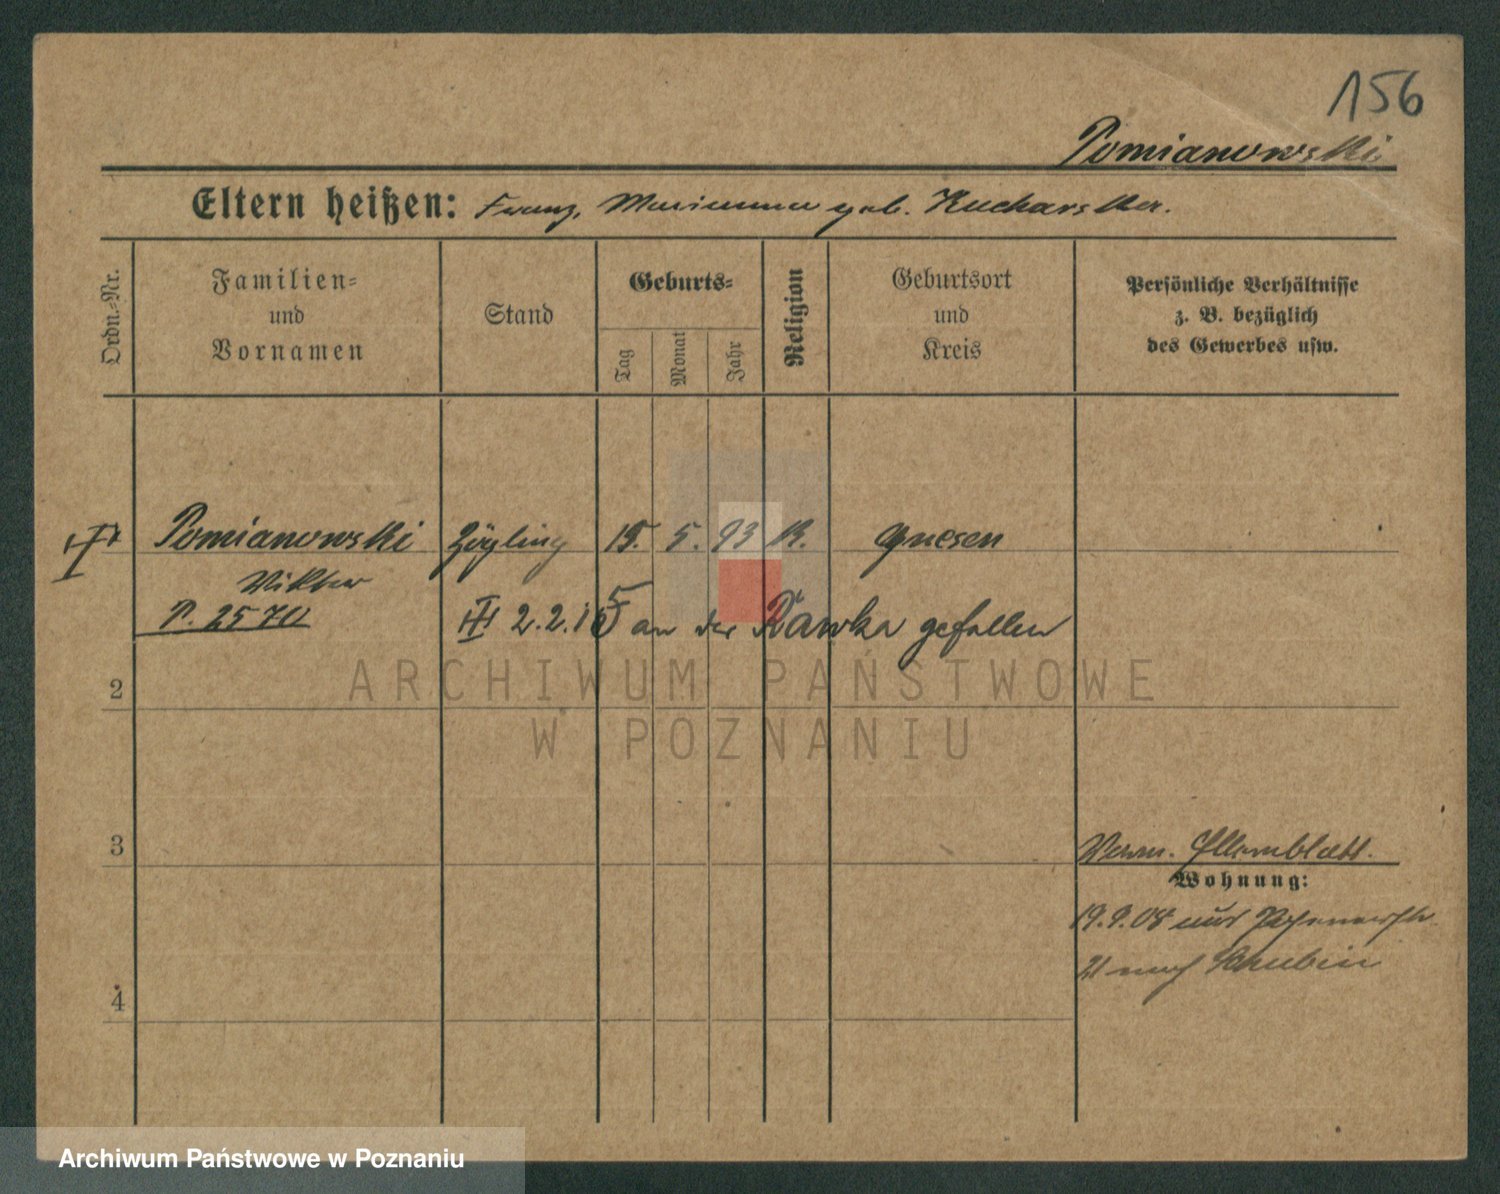 156
Pomianowski
Eltern heißen: Franz, Marianna geb. Kucharska.
Ordn.-Nr.
Familien-
und
Vornamen
Stand
Geburts-
Tag
Monat
Jahr
Religion
Geburtsort
und
Kreis
Persönliche Verhältnisse
z. B. bezüglich
des Gewerbes usw.
Pomianowski Zögling 15. 5. 93 K. Gnesen
Viktor
P. 2570
2.2.15 an der Rawka gefallen
2
3
Elternblatt.
Wohnung:
19.9.08
21 nach Schubin
4
ARCHIWUM PAŃSTWOWE
W POZNANIU
Archiwum Państwowe w Poznaniu